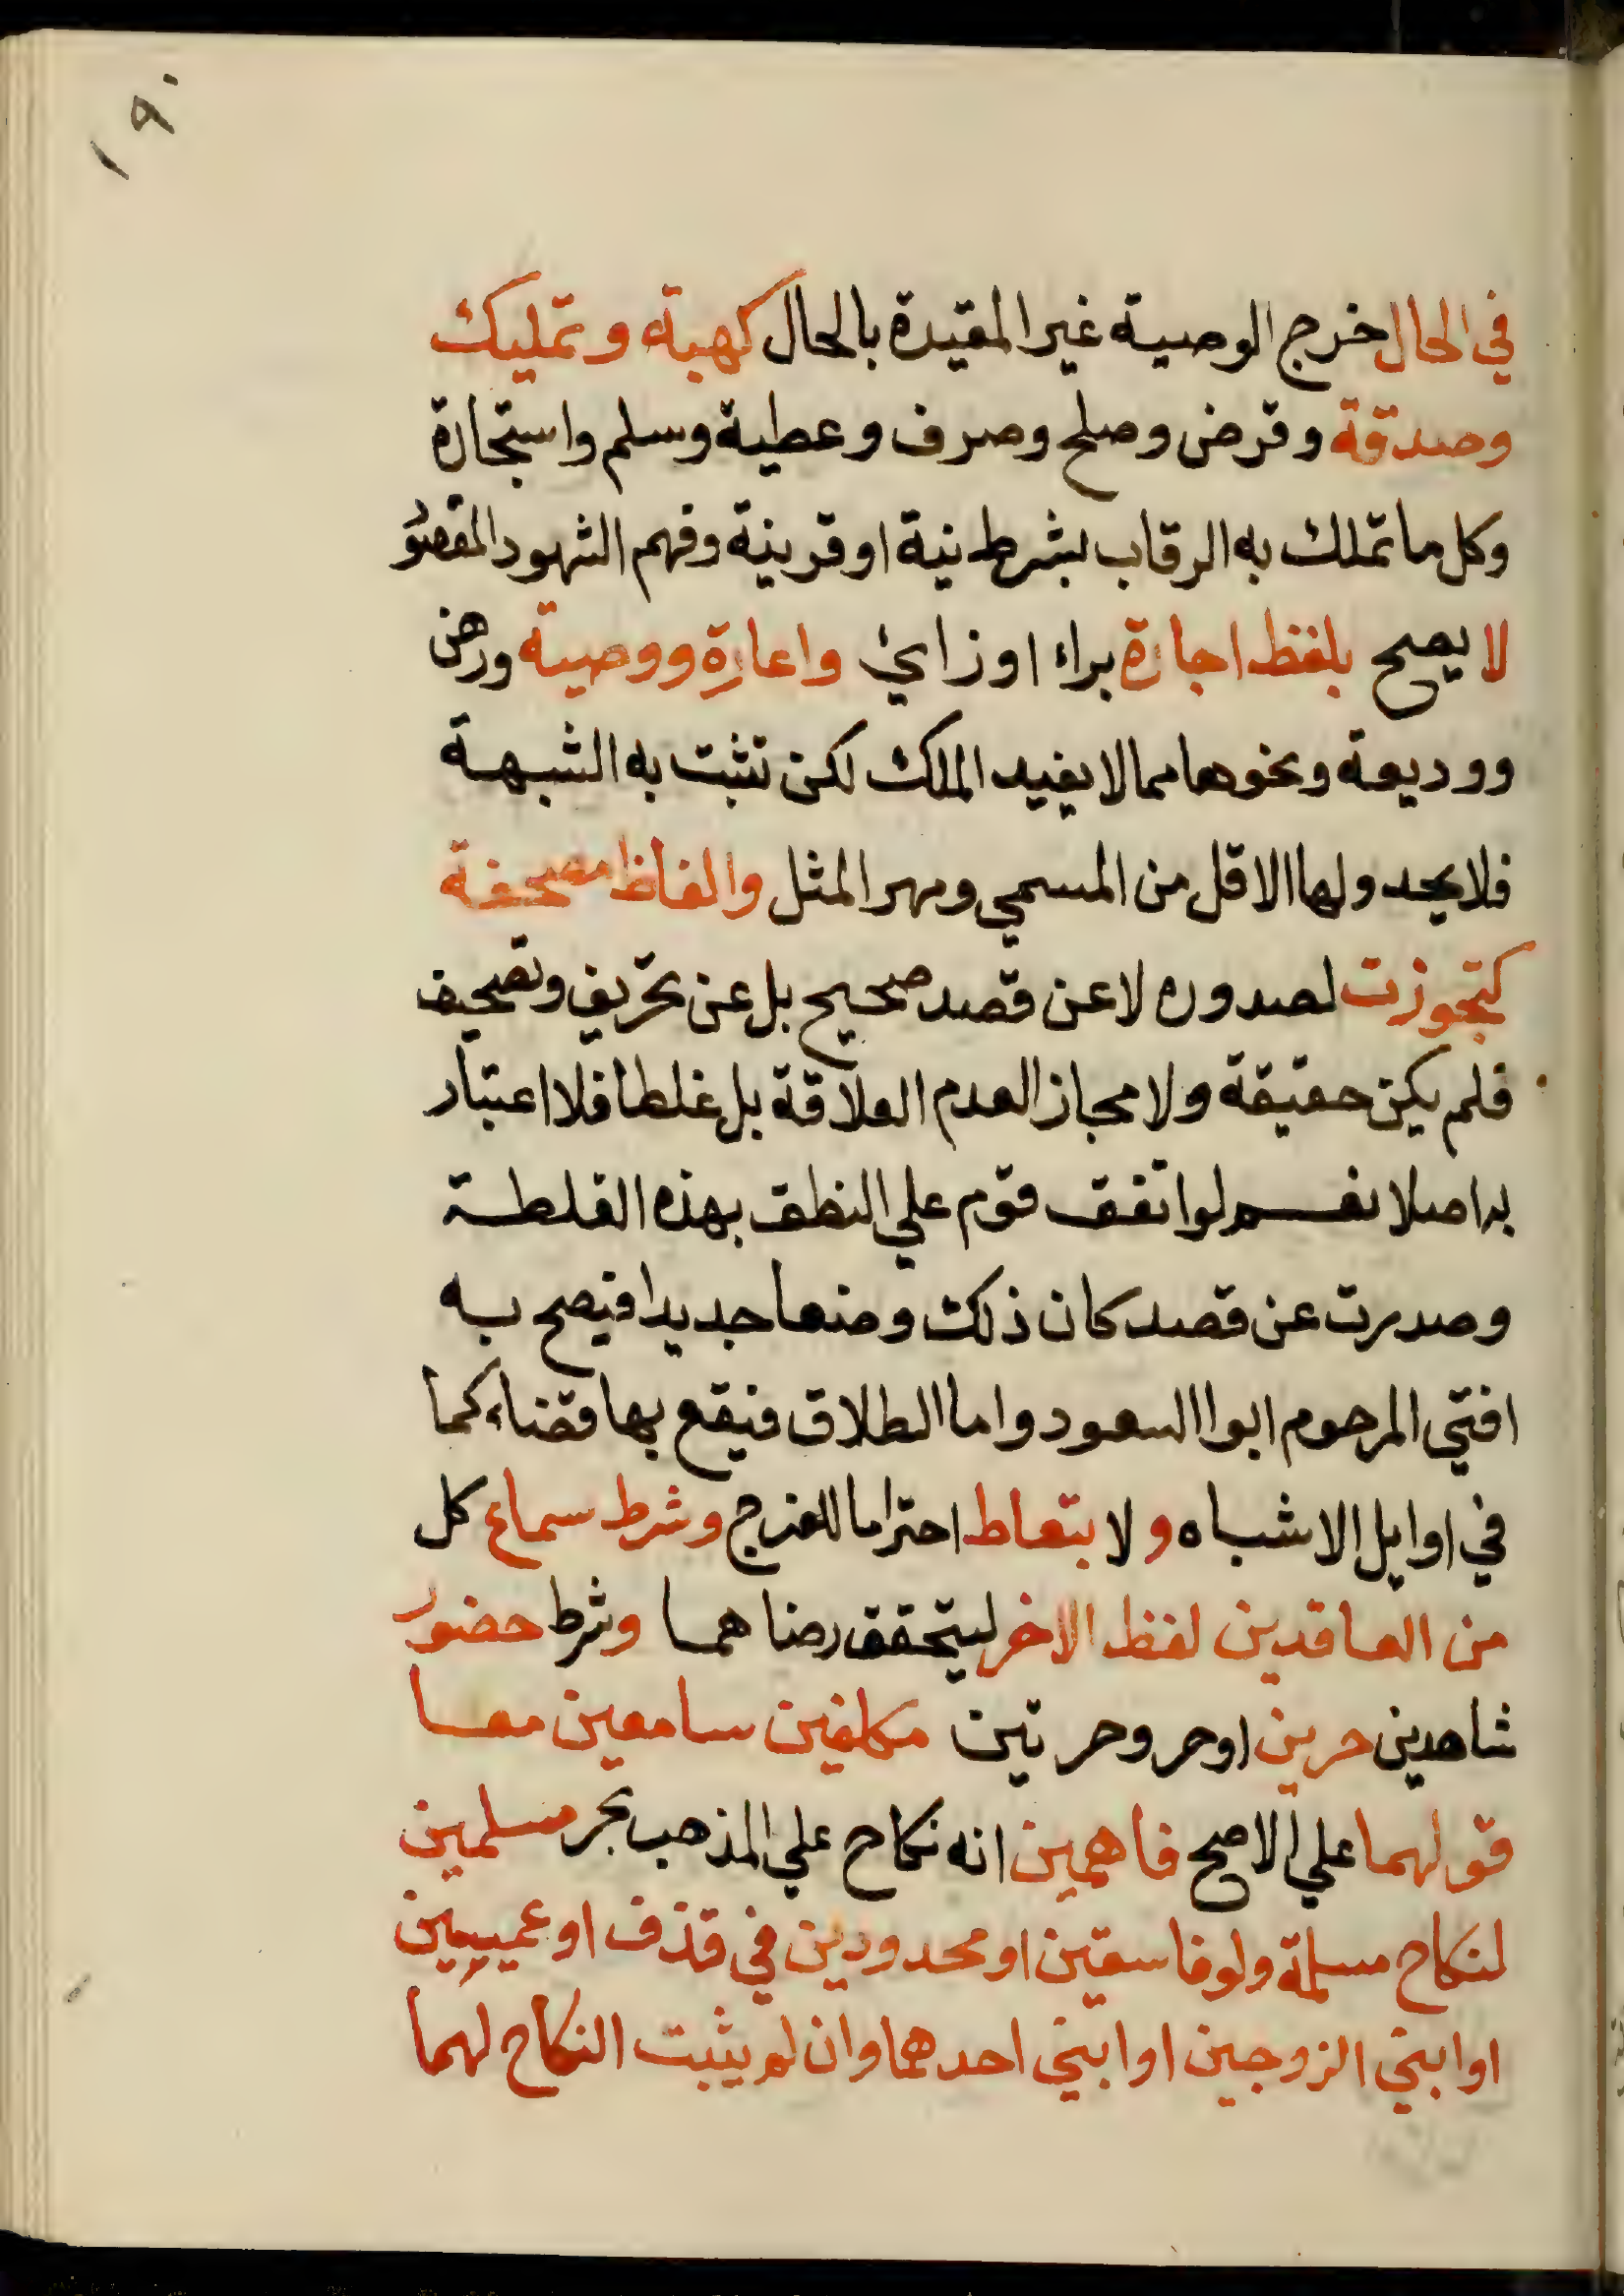 ١٩٠
في الحال خرج الوصية غير المقيدة بالحال كهبة وتمليك
وصدقة وقرض وصلح وصرف وعطية وسلم واستجارة
وكل ما تملك به الرقاب بشرط نية او قرينة وفهم الشهود المقصود
لا يصح بلفظ اجارة براء او زاي واعارة ووصية ورهن
ووديعة ونحوها مما لا يفيد الملك لكن تثبت به الشبهة
فلا يحد ولها الاقل من المسمي ومهر المثل والفاظ مصحفة
كتجوزت لصدوره لا عن قصد صحيح بل عن تحريف وتصحيف
فلم يكن حقيقة ولا مجاز العدم العلاقة بل غلطا فلا اعتبار
به اصلا نعم لو اتفق قوم علي النطق بهذه الغلطة
وصدرت عن قصد كان ذلك وضعا جديدا فيصح به
افتي المرحوم ابوا السعود واما الطلاق فيقع بها قضاء كما
في اوايل الاشباه ولا بتعاط احتراما للفرج وشرط سماع كل
من العاقدين لفظ الاخر ليتحقق رضاهما وشرط حضور
شاهدين حرين او حر وحرتين مكلفين سامعين معا
قولهما علي الاصح فاهمين انه نكاح علي المذهب بحر مسلمين
لنكاح مسلمة ولو فاسقين او محدودين في قذف او عميين
او ابني الزوجين او ابني احدهما وان لم يثبت النكاح لهما